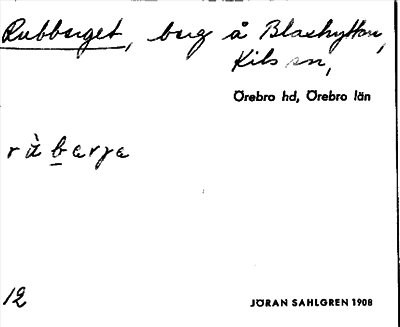 Rubberget, berg å Blashyttan,
Kils sn,
Örebro hd, Örebro län
rùbærja
12
JÖRAN SAHLGREN 1908